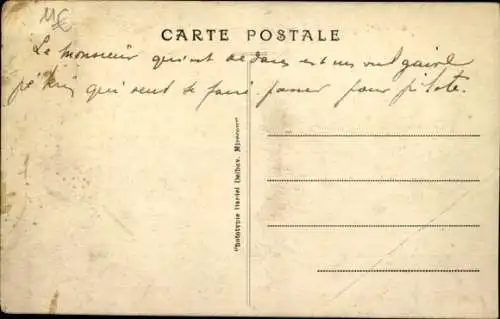 11€
CARTE POSTALE
Le monsieur qui est dedans est un vulgaire
pékin qui veut se faire passer pour pilote.
"Phototypie Daniel Delboy, Mirecourt"